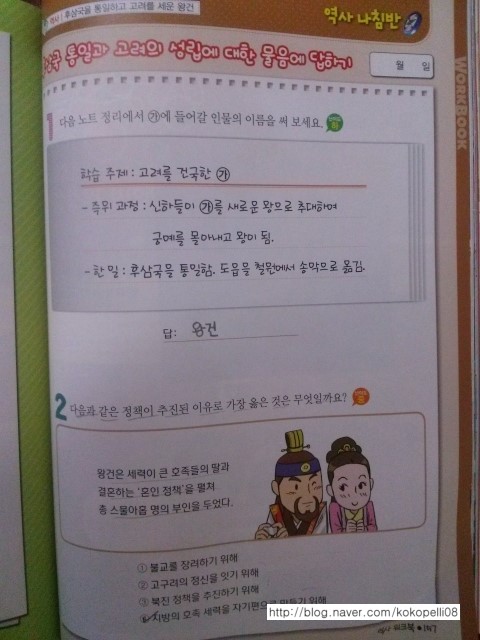 역사 | 후삼국을 통일하고 고려를 세운 왕건
역사 나침반
삼국 통일과 고려의 성립에 대한 물음에 답하기
월 일
WORKBOOK
1 다음 노트 정리에서 ㉮에 들어갈 인물의 이름을 써 보세요.
학습 주제 : 고려를 건국한 ㉮
- 즉위 과정 : 신하들이 ㉮를 새로운 왕으로 추대하여
궁예를 몰아내고 왕이 됨.
- 한 일 : 후삼국을 통일함. 도읍을 철원에서 송악으로 옮김.
답: 왕건
2 다음과 같은 정책이 추진된 이유로 가장 옳은 것은 무엇일까요?
왕건은 세력이 큰 호족들의 딸과
결혼하는 '혼인 정책'을 펼쳐
총 스물아홉 명의 부인을 두었다.
① 불교를 장려하기 위해
② 고구려의 정신을 잇기 위해
③ 북진 정책을 추진하기 위해
④ 지방의 호족 세력을 자기편으로 만들기 위해
http://blog.naver.com/kokopelli08